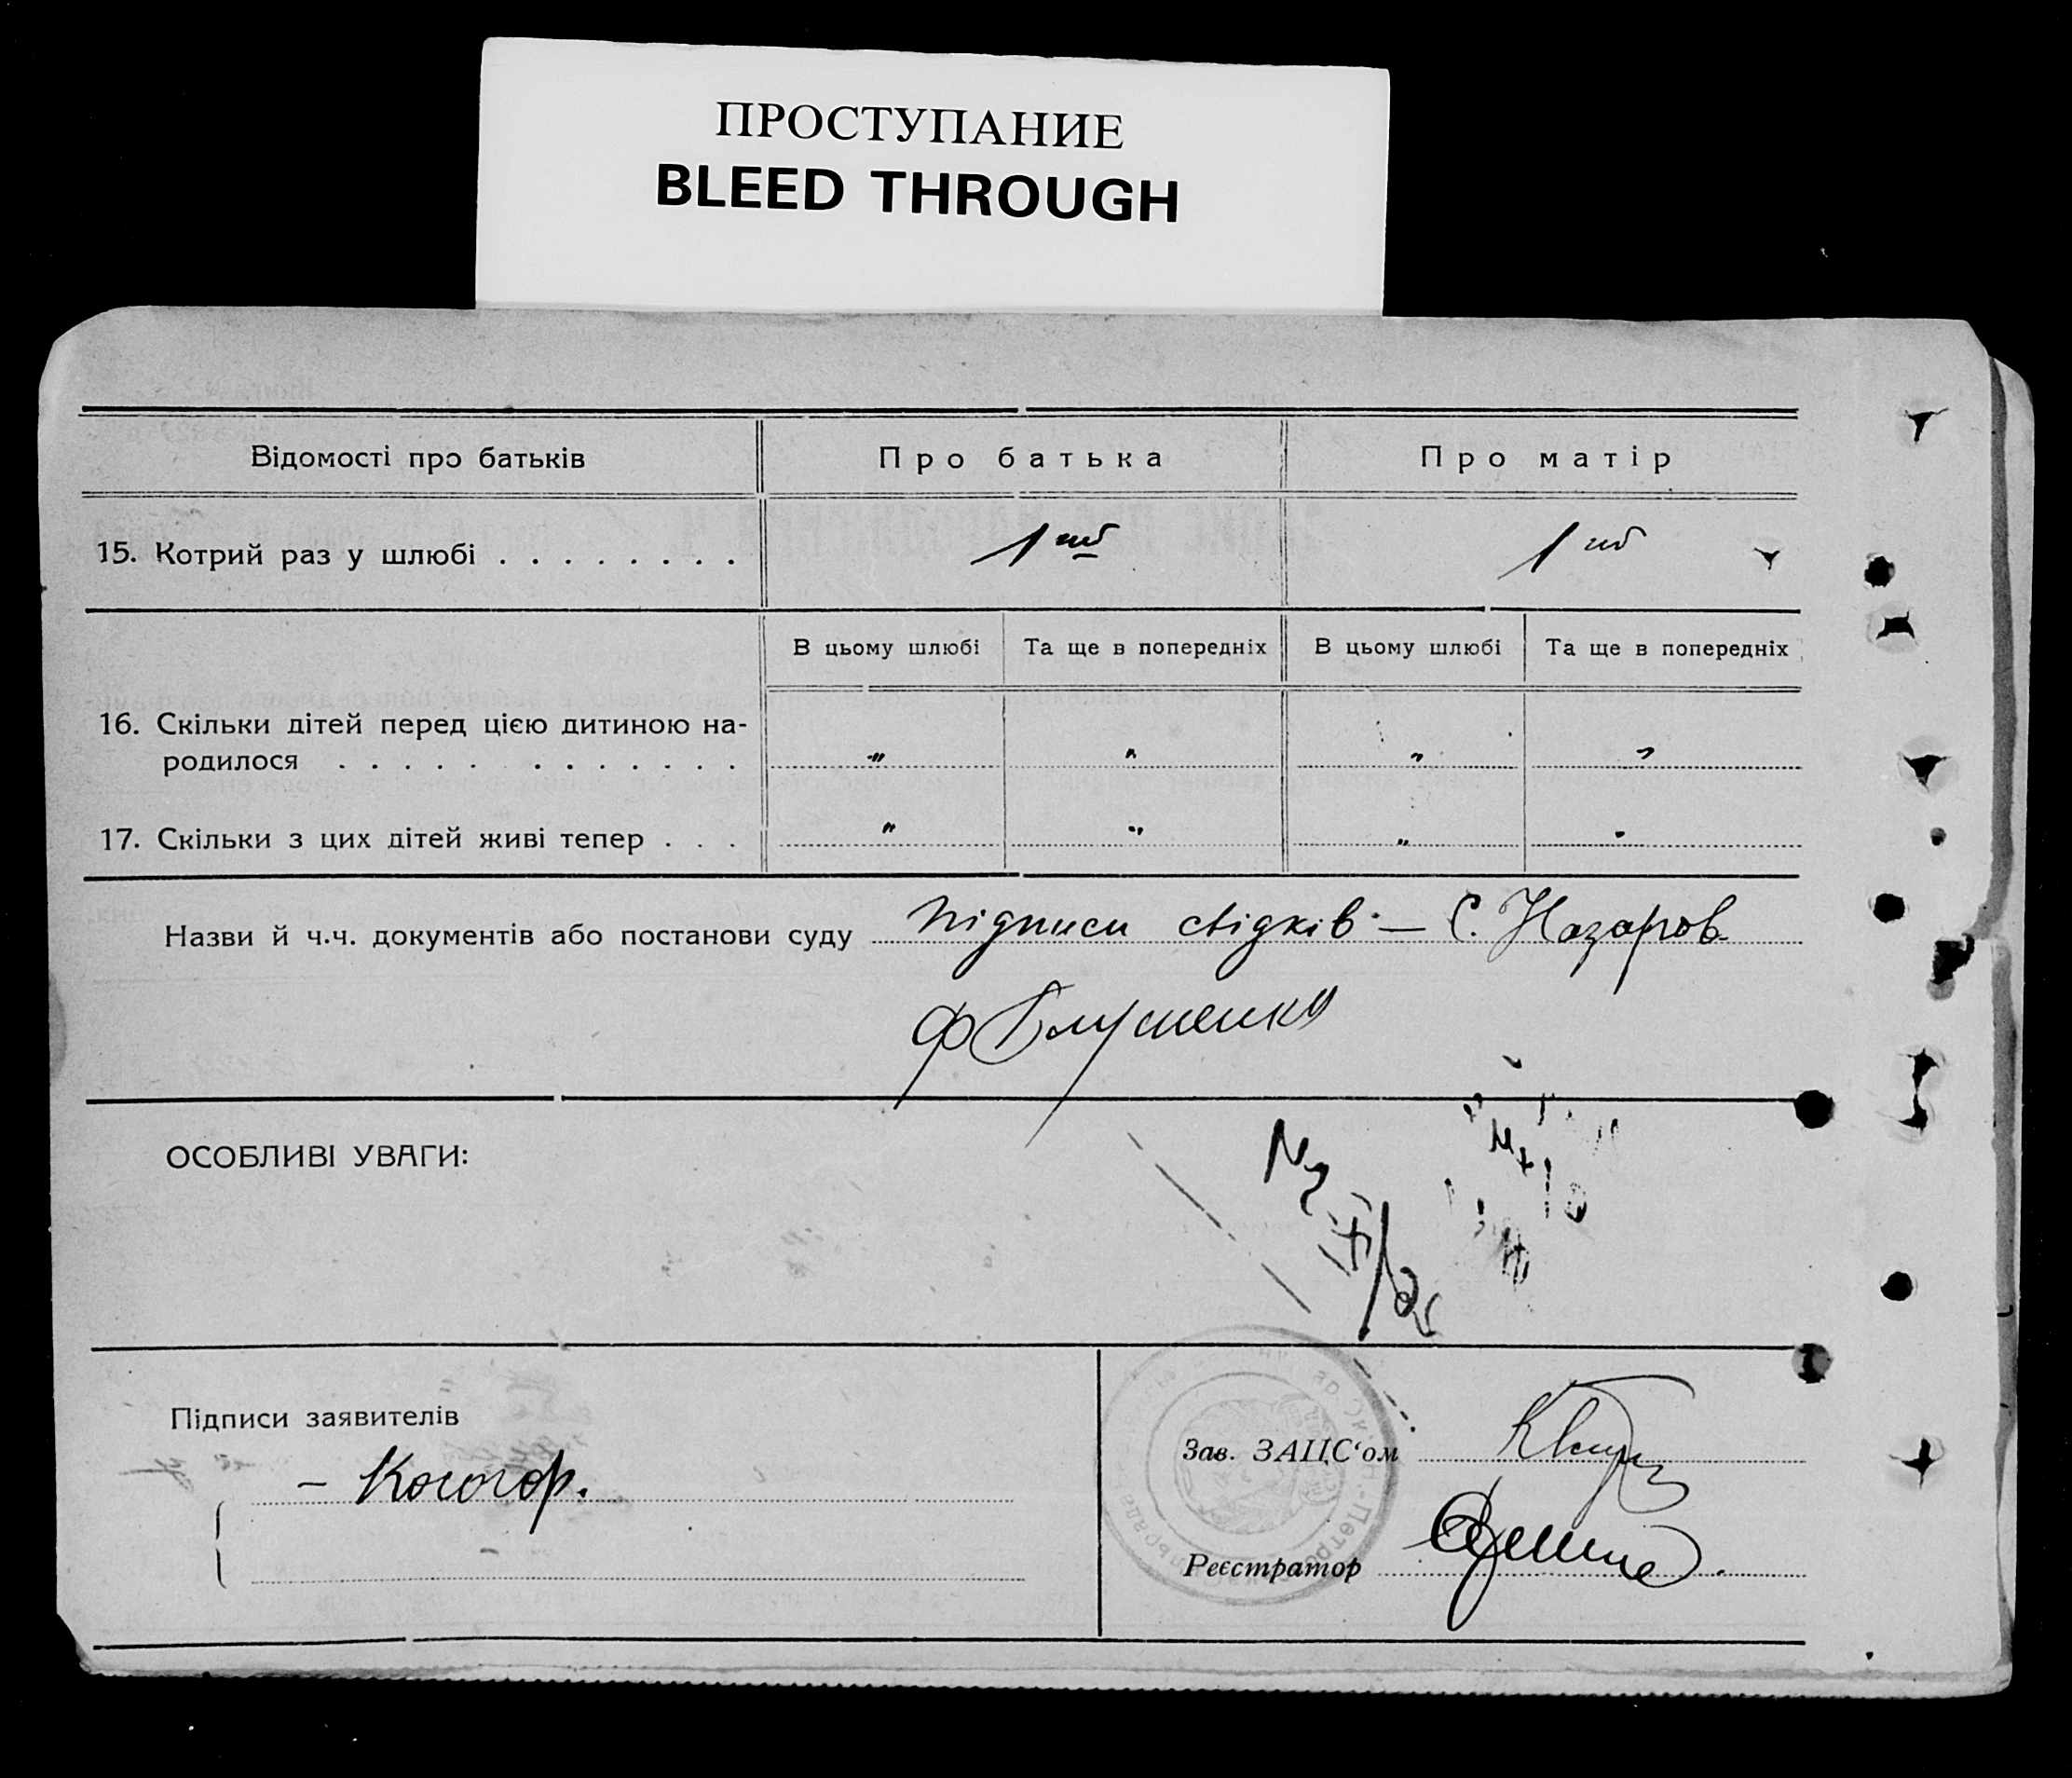 ПРОСТУПАНИЕ
BLEED THROUGH
Відомості про батьків
Про батька
Про матір
15. Котрий раз у шлюбі . . . . . . . .
1
1
В цьому шлюбі
Та ще в попередніх
В цьому шлюбі
Та ще в попередніх
16. Скільки дітей перед цією дитиною на-
родилося . . . . . . . . . . . . .
„ „ „ „
17. Скільки з цих дітей живі тепер . . .
„ „ „
Назви й ч.ч. документів або постанови суду підписи свідків — С. Назаров
Ф
ОСОБЛИВІ УВАГИ:
Підписи заявителів
Зав. ЗАЦС‘ом
Реєстратор